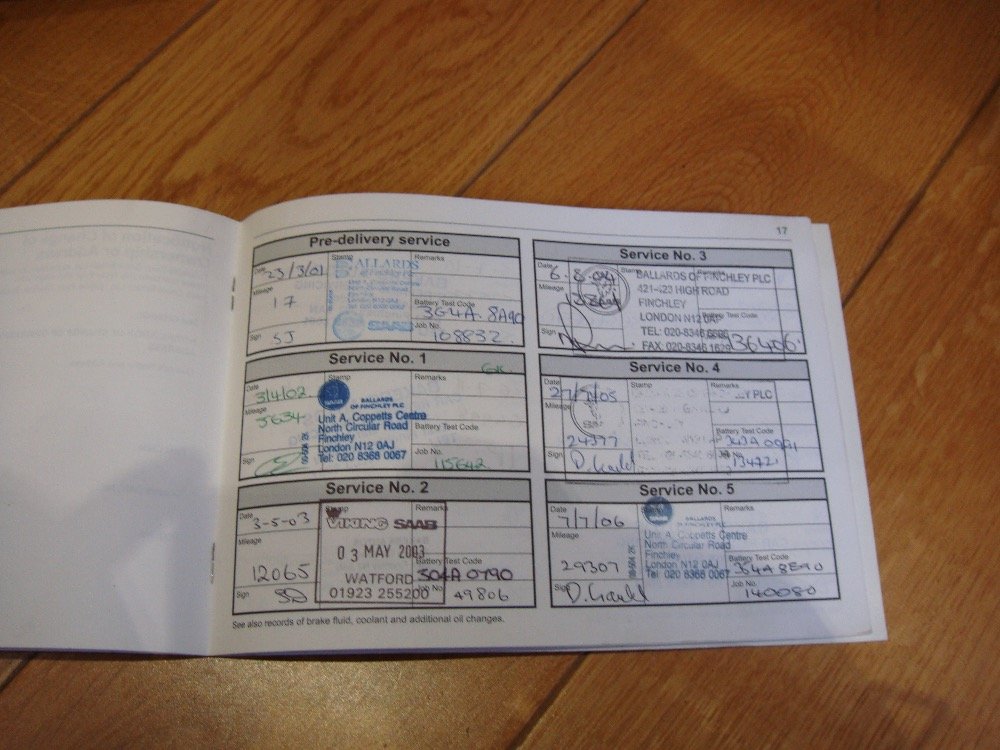 17
Pre-delivery service
Date 23/3/01
Stamp BALLARDS
of Finchley Plc
Remarks
Mileage 17
SAAB
Battery Test Code
364A 8A90
Sign SJ
Job No. 108832
Service No. 1
Date 3/4/02
Stamp
Remarks
Mileage 5634
SAAB
BALLARDS
OF FINCHLEY PLC
Unit A, Coppetts Centre
North Circular Road
Finchley
London N12 0AJ
Tel: 020 8368 0067
Battery Test Code
Sign
Job No. 115642
Service No. 2
Date 3-5-03
Stamp
Remarks
VIKING SAAB
Mileage 12065
03 MAY 2003
WATFORD
01923 255200
Battery Test Code
304A 0790
Sign SD
Job No. 49806
Service No. 3
Date
Stamp
Remarks
Mileage
BALLARDS OF FINCHLEY PLC
421-423 HIGH ROAD
FINCHLEY
LONDON N12 0AP
TEL: 020-8346 6696
FAX: 020-8346 1629
Battery Test Code
Sign
136406
Service No. 4
Date 27/7/05
Stamp
Remarks
Y PLC
Mileage 24377
Battery Test Code
Sign
Job No. 134721
Service No. 5
Date 7/7/06
Stamp
Remarks
Mileage 29307
BALLARDS
OF FINCHLEY PLC
Unit A, Coppetts Centre
North Circular Road
Finchley
London N12 0AJ
Tel: 020 8368 0067
Battery Test Code
364A 8E90
Sign
Job No. 140080
See also records of brake fluid, coolant and additional oil changes.